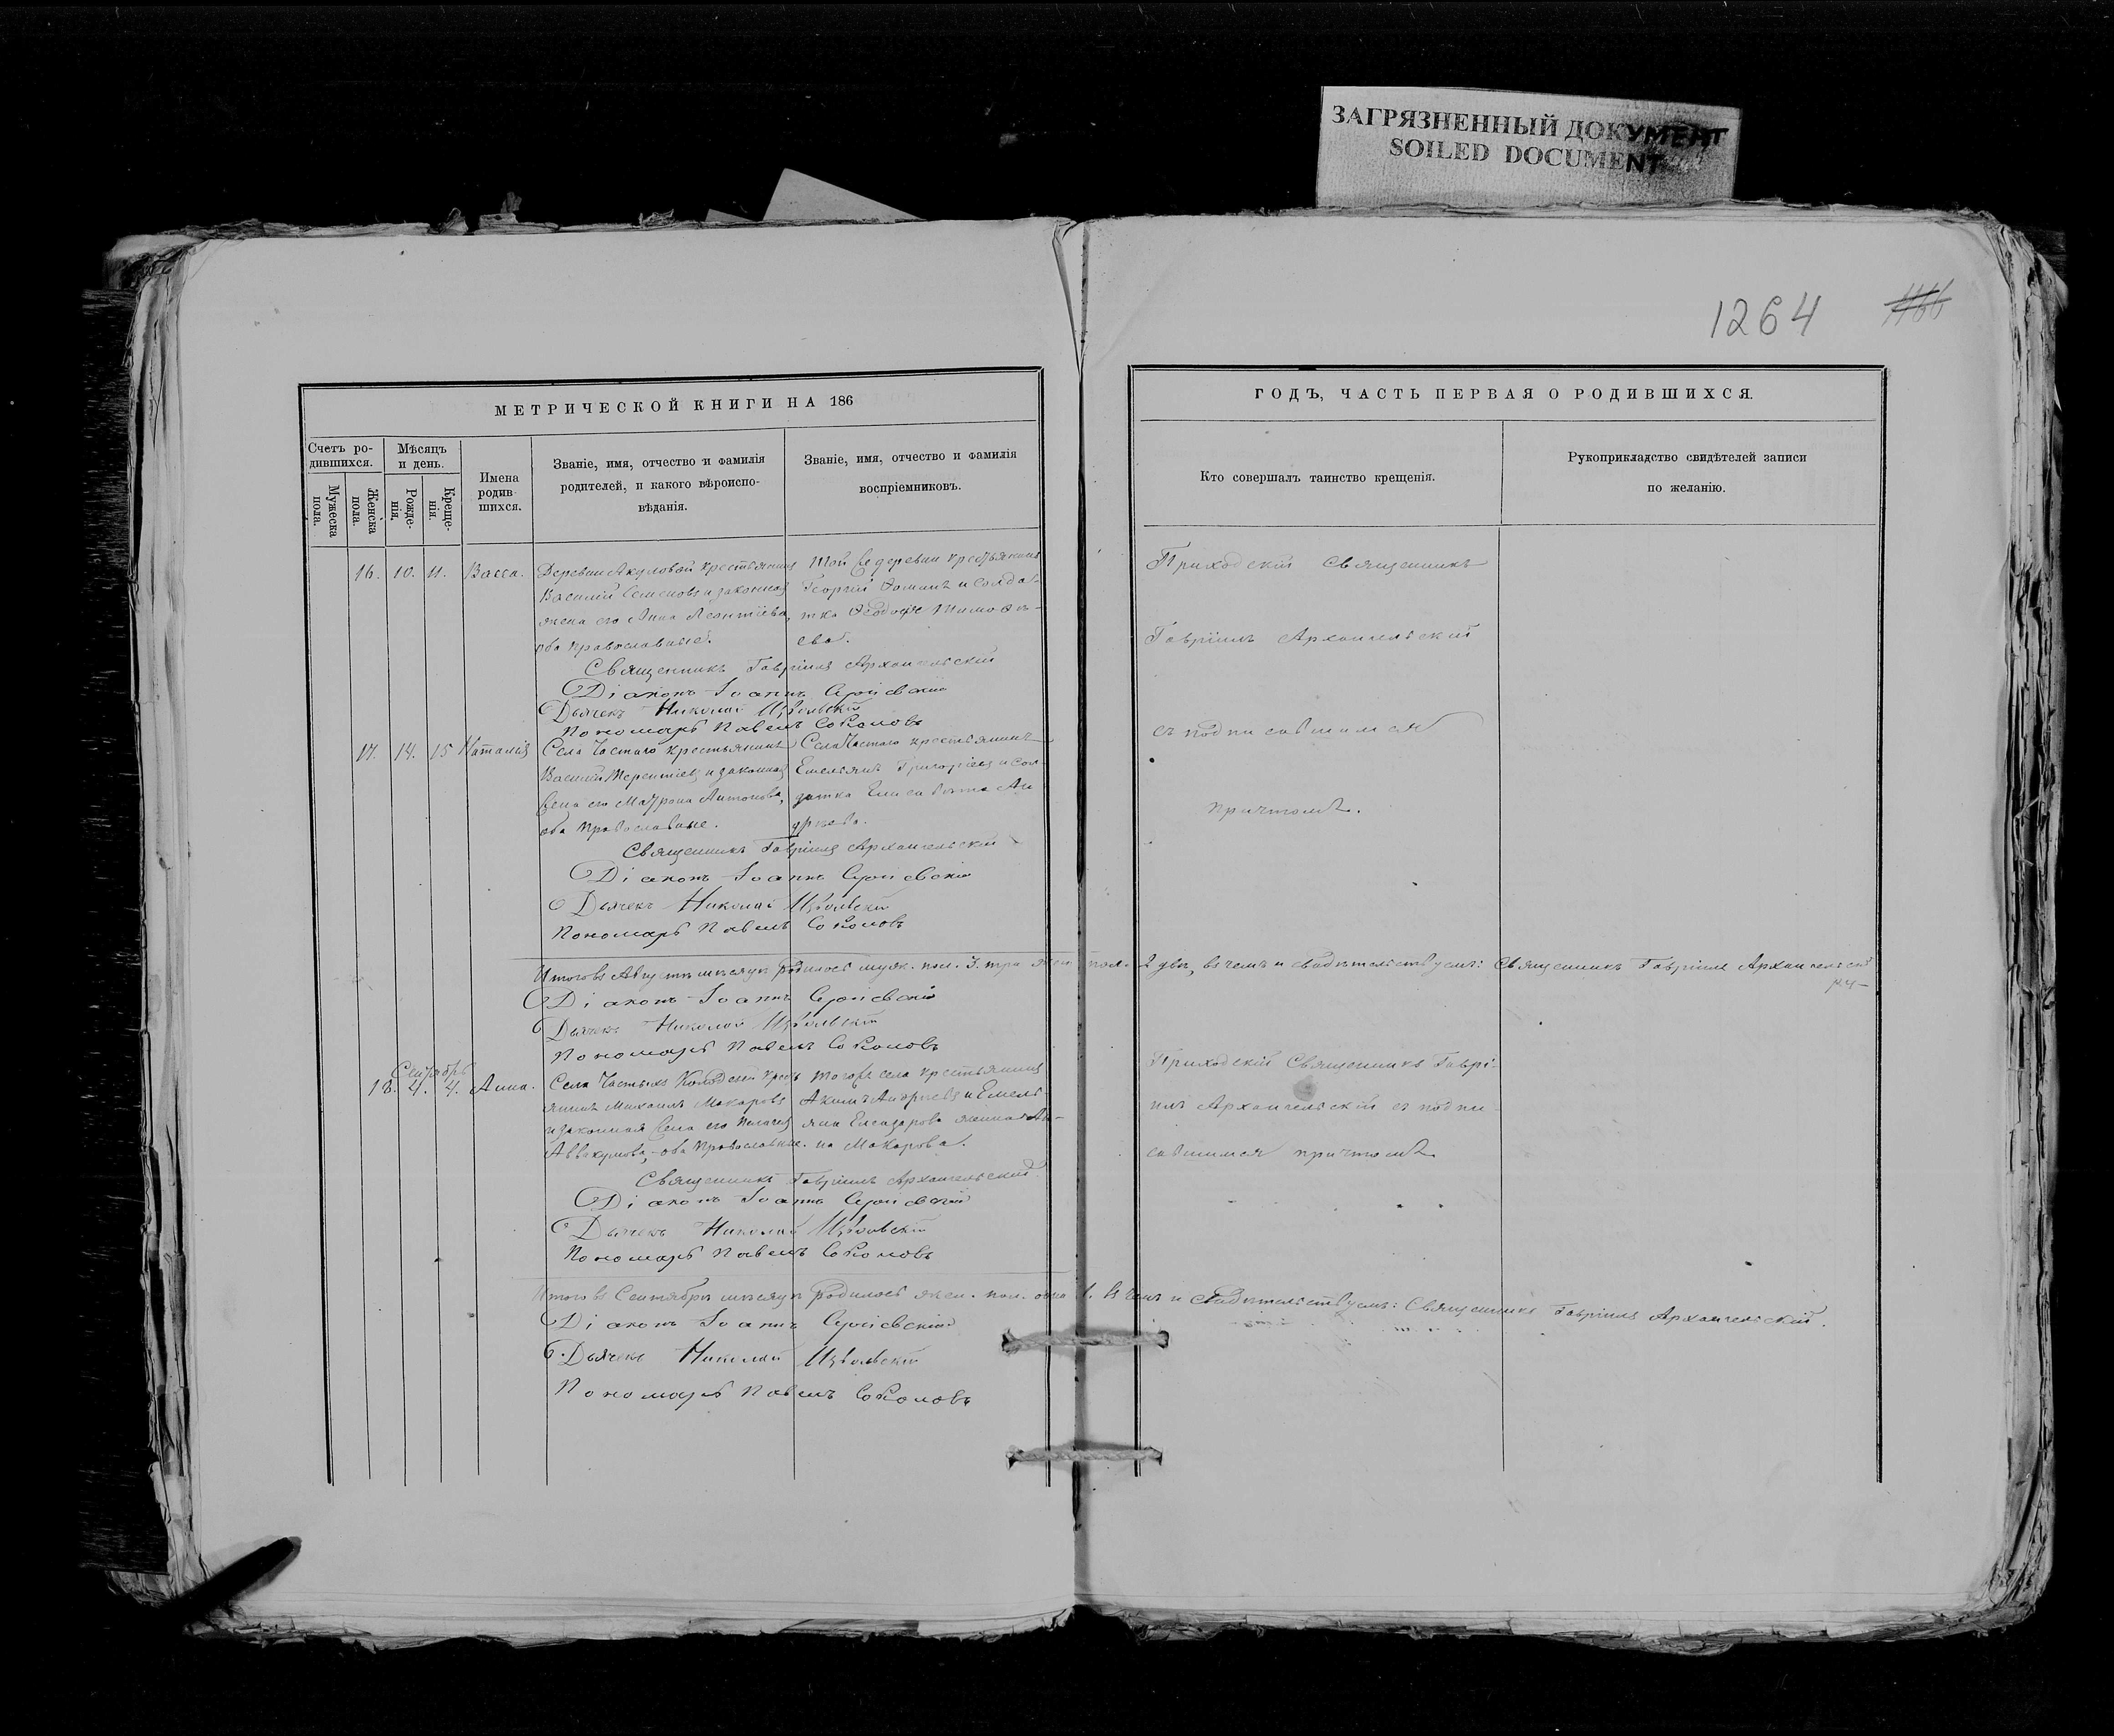 ЗАГРЯЗНЕННЫЙ ДОКУМЕНТ
SOILED DOCUMENT
1264
1166
МЕТРИЧЕСКОЙ КНИГИ НА 186
Счетъ ро-
дившихся.
Мужеска
пола.
Женска
пола.
Мѣсяцъ
и день.
Рожде-
нія.
Креще-
нія.
Имена
родив-
шихся.
Званіе, имя, отчество и фамилія
родителей, и какого вѣроиспо-
вѣданія.
Званіе, имя, отчество и фамилія
воспріемниковъ.
16. 10. 11. Васса.
Деревни Акуловой крестьянинъ
Василій Семеновъ и законная
жена его Анна Леонтіева,
оба православные.
Той же деревни крестьянинъ
Георгій Фоминъ и солда-
тка Ѳеодосія Тимоѳѣ-
ева.
Священникъ Гавріилъ Архангельскій
Діаконъ Іоаннъ
Дьячекъ Николай
Пономарь Павелъ Соколовъ
17. 14. 15 Наталія
Села Частаго крестьянинъ
Василій Терентіевъ и законная
жена его Матрона Антонова,
оба православные.
Села Частаго крестьянинъ
Емельянъ Григорьевъ и сол-
датка Елисавета Ан
дреева.
Священникъ Гавріилъ Архангельскій
Діаконъ Іоаннъ
Дьячекъ Николай
Пономарь Павелъ Соколовъ
Итого въ Августѣ мѣсяцѣ родилось муж. пол. 3. три жен. пол. 2 двѣ, въ чемъ и свидѣтельствуемъ: Священникъ Гавріилъ Архангельскій
Діаконъ Іоаннъ
Дьячекъ Николай
Пономарь Павелъ Соколовъ
Сентябрь
18. 4. 4. Анна.
Села Частыхъ Колодезей крест
янинъ Михаилъ Макаровъ
и законная жена его Пелагея
Аввакумова, оба православные.
Тогоже села крестьянинъ
Акимъ Андреевъ и Емель
яна Елеазарова жена Ан-
на Макарова.
Священникъ Гавріилъ Архангельскій
Діаконъ Іоаннъ
Дьячекъ Николай
Пономарь Павелъ Соколовъ
Итого въ Сентябрѣ мѣсяцѣ родилось жен. пол. одна 1. въ чемъ и свидѣтельствуемъ: Священникъ Гавріилъ Архангельскій.
Діаконъ Іоаннъ
Дьячекъ Николай
Пономарь Павелъ Соколовъ
ГОДЪ, ЧАСТЬ ПЕРВАЯ О РОДИВШИХСЯ.
Кто совершалъ таинство крещенія.
Рукоприкладство свидѣтелей записи
по желанію.
Приходскій Священникъ
Гавріилъ Архангельскій
съ подписавшимся
причтомъ.
Приходскій Священникъ Гаврі-
илъ Архангельскій съ подпи-
савшимся причтомъ